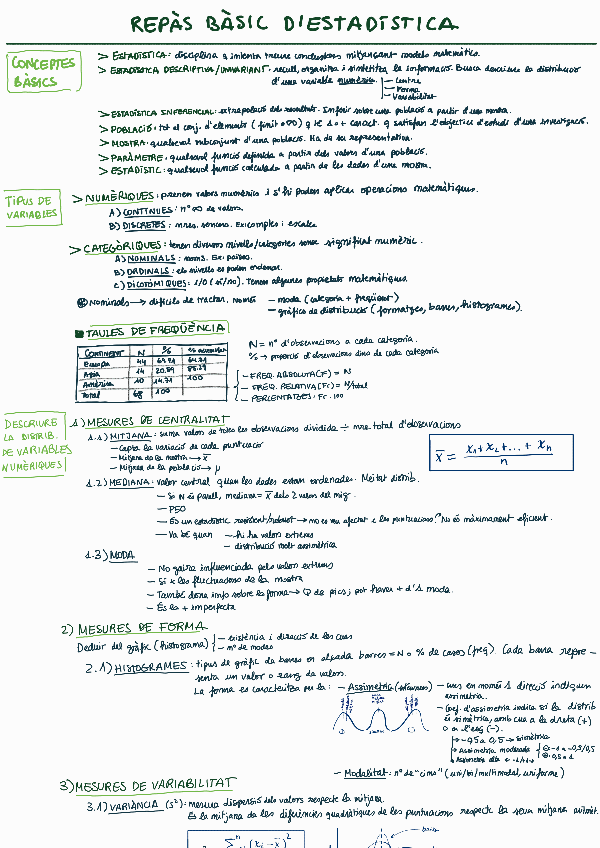 REPÀS BÀSIC D'ESTADÍSTICA
CONCEPTES BÀSICS
> ESTADÍSTICA: disciplina q intenta treure conclusions mitjançant models matemàtics.
> ESTADÍSTICA DESCRIPTIVA/UNIVARIANT: recull, organitza i sintetitza la informació. Busca descriure la distribució
d'una variable numèrica.
– Centre
– Forma
– Variabilitat
> ESTADÍSTICA INFERENCIAL: extrapolació dels resultats. Inferir sobre una població a partir d'una mostra.
> POBLACIÓ: tot el conj. d'elements (finit o ∞) q té 1 o + caract. q satisfan l'objectiu d'estudi d'una investigació.
> MOSTRA: qualsevol subconjunt d'una població. Ha de ser representativa.
> PARÀMETRE: qualsevol funció definida a partir dels valors d'una població.
> ESTADÍSTIC: qualsevol funció calculada a partir de les dades d'una mostra.
TIPUS DE VARIABLES
> NUMÈRIQUES: prenen valors numèrics i s'hi poden aplicar operacions matemàtiques.
A) CONTÍNUES: nº ∞ de valors.
B) DISCRETES: nres. sencers. Ex: comptes i escales
> CATEGÒRIQUES: tenen diversos nivells/categories sense significat numèric.
A) NOMINALS: noms. Ex: països.
B) ORDINALS: els nivells es poden ordenar.
C) DICOTÒMIQUES: 1/0 (sí/no). Tenen algunes propietats matemàtiques.
Nominals → difícils de tractar. Només
– moda (categoria + freqüent)
– gràfics de distribució (formatges, barres, histogrames).
TAULES DE FREQÜÈNCIA
CONTINENT N % % acumulat
Europa 44 64.71 64.71
Àsia 14 20.59 85.29
Amèrica 10 14.71 100
Total 68 100
N = nº d'observacions a cada categoria.
% → proporció d'observacions dins de cada categoria
– FREQ. ABSOLUTA (F) = N
– FREQ. RELATIVA (Fr) = N/total
– PERCENTATGES = Fr · 100
DESCRIURE LA DISTRIB. DE VARIABLES NUMÈRIQUES
1) MESURES DE CENTRALITAT
1.1) MITJANA: suma valors de totes les observacions dividida ÷ nre. total d'observacions
– Capta la variació de cada puntuació
– Mitjana de la mostra → x̄
– Mitjana de la població → μ
x̄ = x₁ + x₂ + ... + xₙ / n
1.2) MEDIANA: valor central quan les dades estan ordenades. Meitat distrib.
– Si N és parell, mediana = x̄ dels 2 valors del mig.
– P50
– És un estadístic resistent/robust → no es veu afectat x les puntuacions. No és màximament eficient.
– Va bé quan
– hi ha valors extrems
– distribució molt asimètrica
1.3) MODA
– No gaire influenciada pels valors extrems
– Sí x les fluctuacions de la mostra
– També dona info sobre la forma → Q de pics; pot haver + d'1 moda.
– És la + imperfecta
2) MESURES DE FORMA
Deduir del gràfic (histograma)
– existència i direcció de les cues
– nº de modes
2.1) HISTOGRAMES: tipus de gràfic de barres on alçada barres = N o % de casos (freq). Cada barra repre-
senta un valor o rang de valors.
La forma es caracteritza per la:
– Assimetria
– cues en només 1 direcció indiquen assimetria.
– Coef. d'assimetria indica si la distrib és simètrica, amb cua a la dreta (+) o a l'esq (-).
→ -0,5 a 0,5 → simètrica
→ Assimetria moderada
– Modalitat: nº de "cims" (uni/bi/multimodal, uniforme)
3) MESURES DE VARIABILITAT
3.1) VARIÀNCIA (s²): mesura dispersió dels valors respecte la mitjana.
És la mitjana de les diferències quadràtiques de les puntuacions respecte la seva mitjana aritmèt.